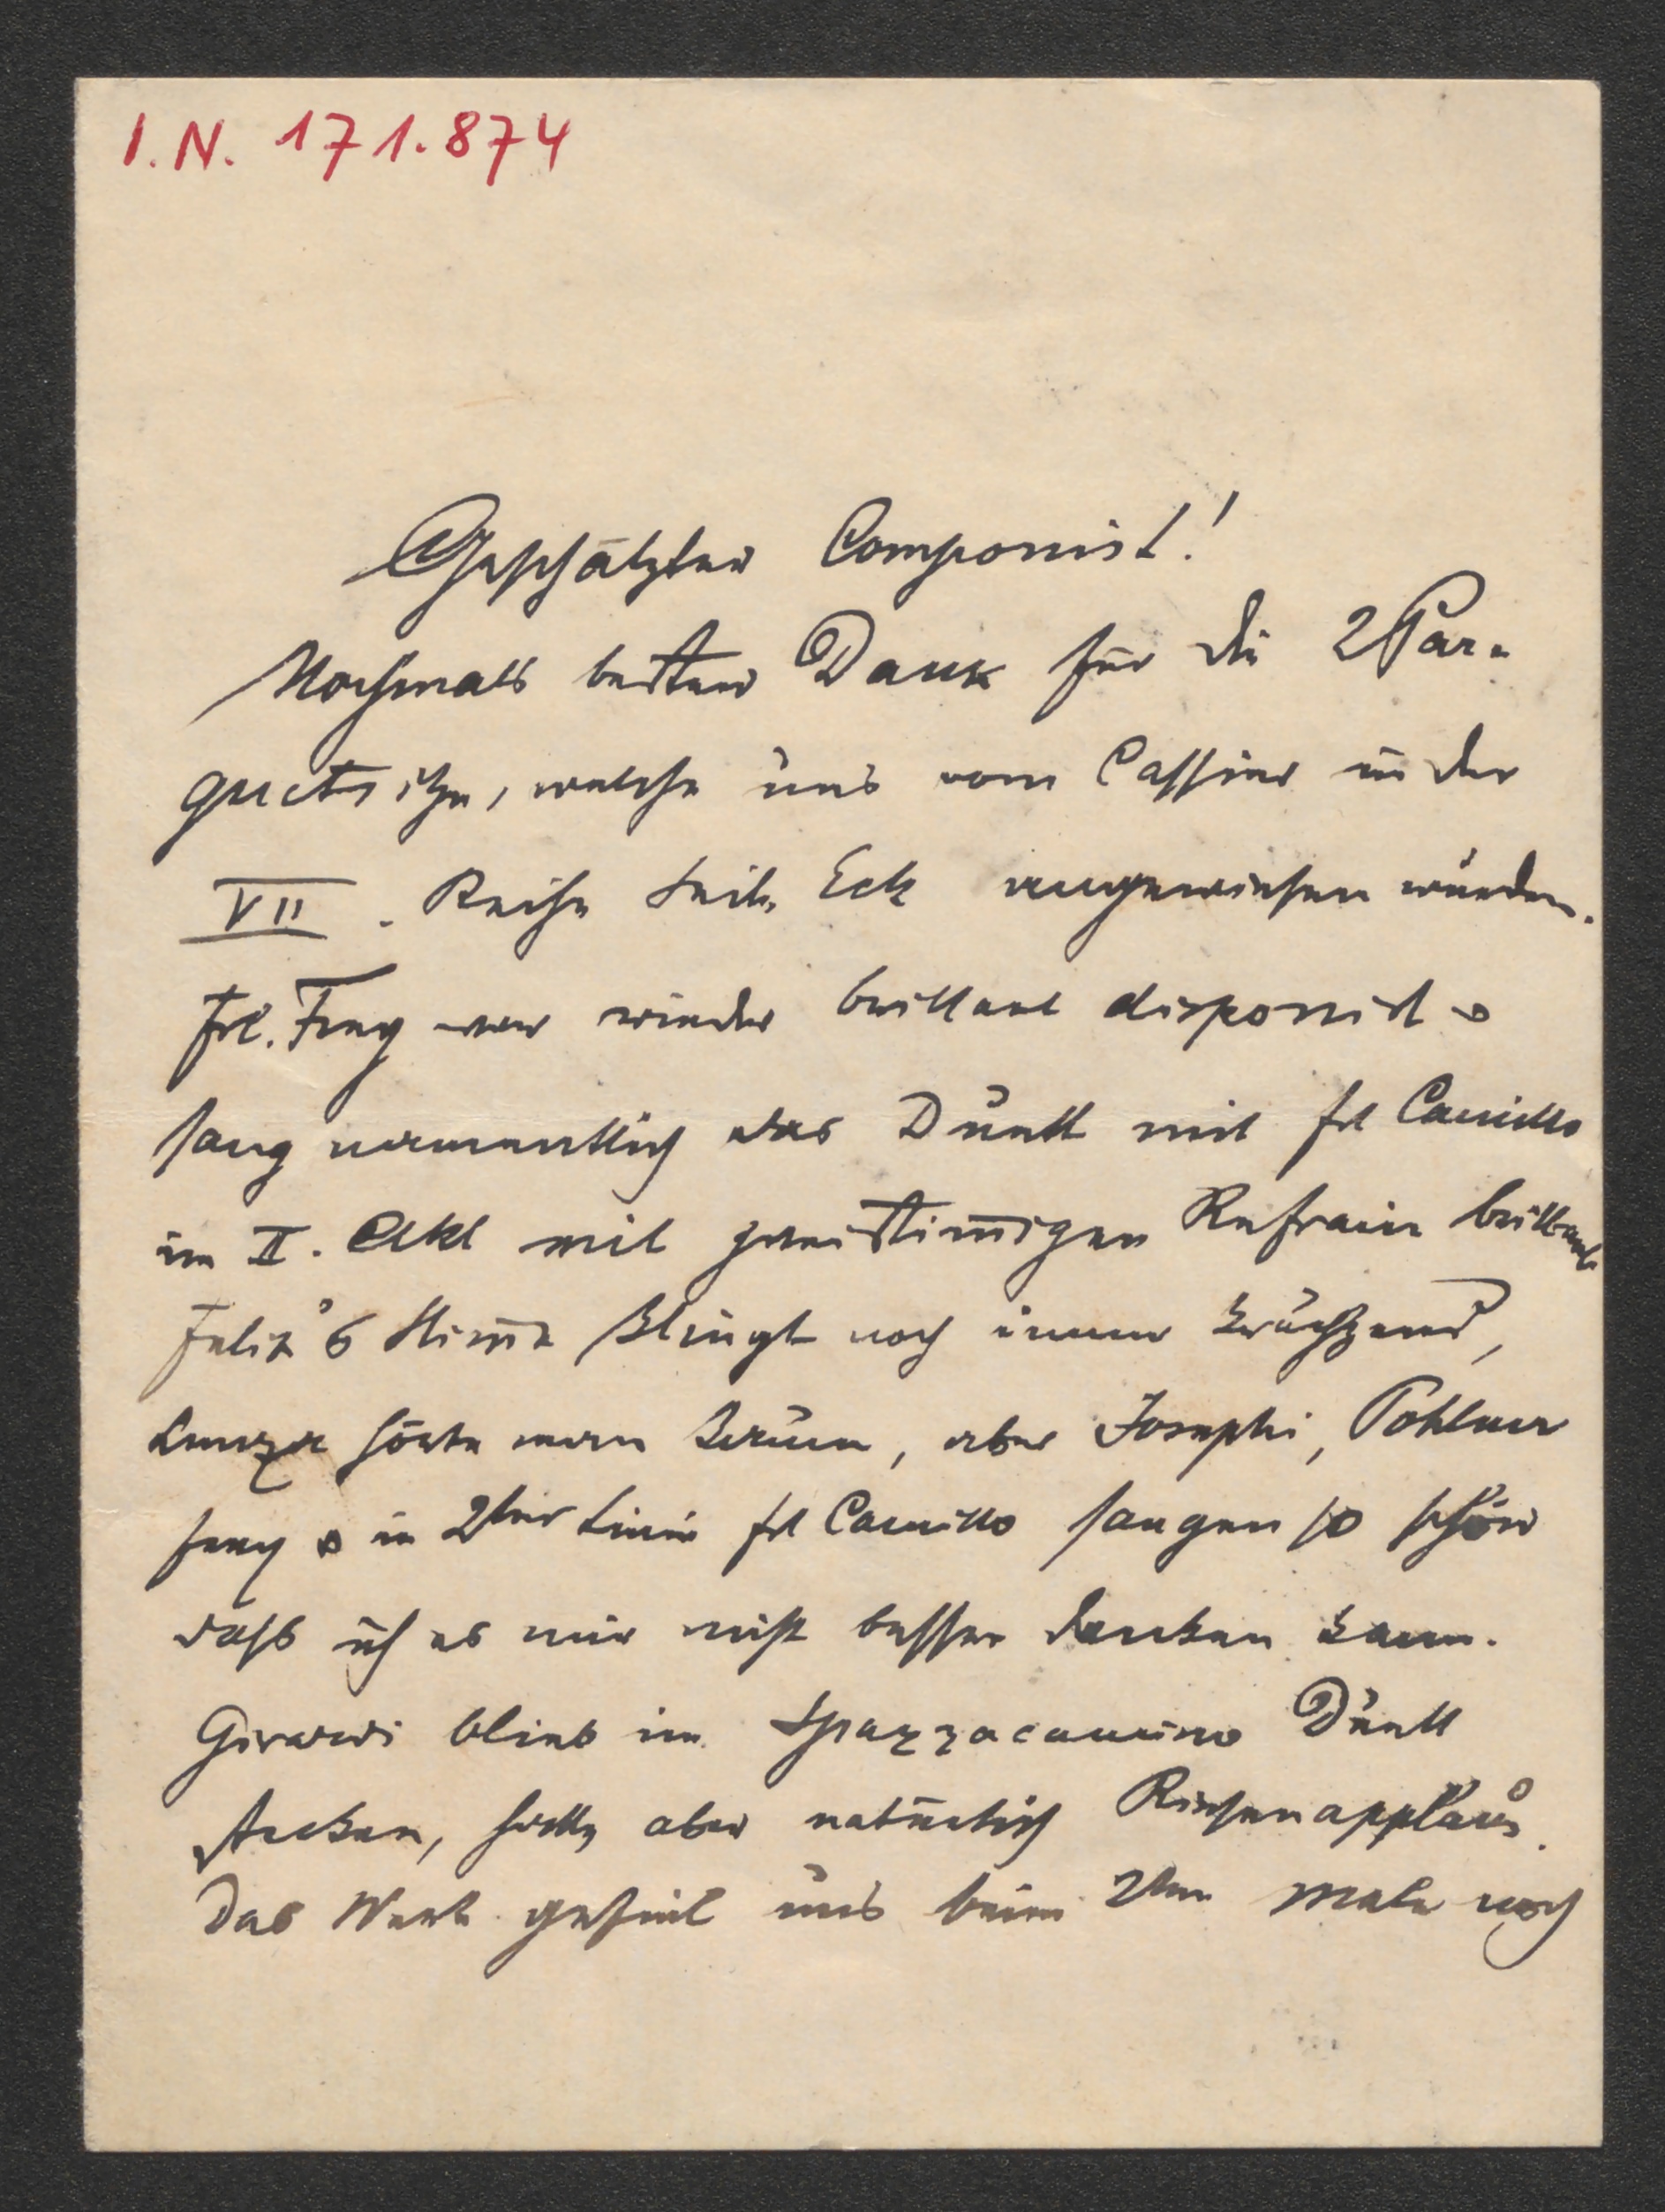 I.N. 171.874
Geschätzter Componist!
Nochmals besten Dank für die 2 Par-
quetsitze, welche uns vom Cassier in der
VII. Reihe Eck angewiesen wurden.
Frl. Frey war wieder brillant disponirt &
sang namentlich das Duett mit Frl Camillo
im II. Akt mit zweistim̄igen Refrain brillant.
Felix's Stim̄e klingt noch immer krächzend,
hörte man kaum, aber Josephi, Pohlner
Frey & in 2ter Linie Frl Camillo sangen so schön
daß ich es mir nicht besser denken kann.
Girardi blieb im Spazzacamino Duett
stecken, hatte aber natürlich Riesenapplaus.
Das Werk gefiel uns beim 2ten Male noch